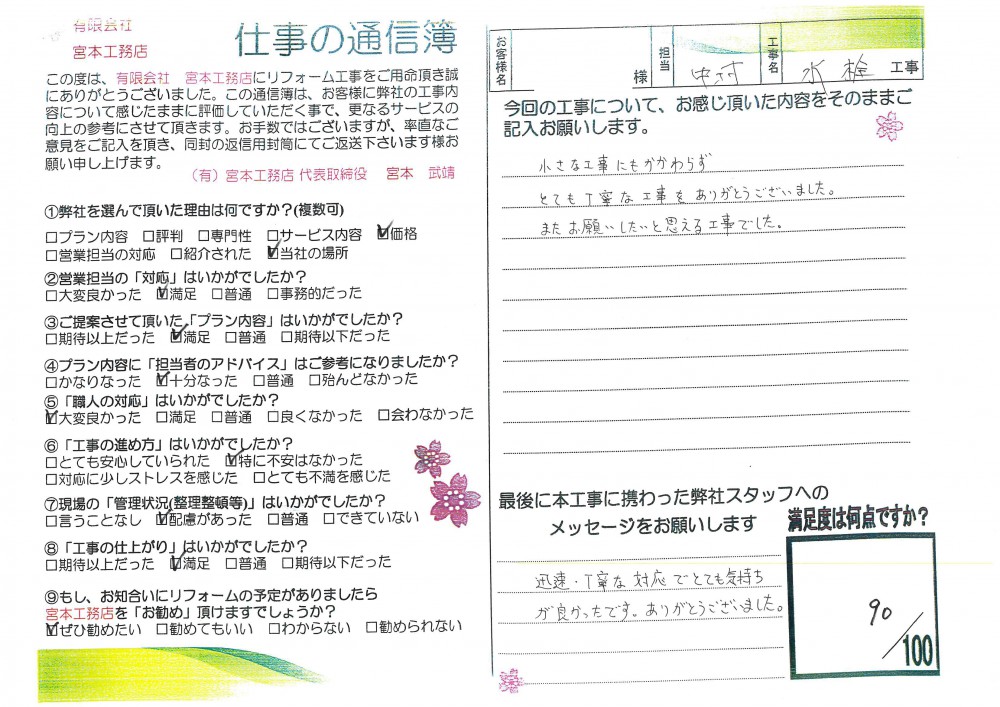 有限会社
宮本工務店
仕事の通信簿
この度は、有限会社 宮本工務店にリフォーム工事をご用命頂き誠
にありがとうございました。この通信簿は、お客様に弊社の工事内
容について感じたままに評価していただく事で、更なるサービスの
向上の参考にさせて頂きます。お手数ではございますが、率直なご
意見をご記入を頂き、同封の返信用封筒にてご返送下さいます様お
願い申し上げます。
（有）宮本工務店 代表取締役 宮本 武靖
①弊社を選んで頂いた理由は何ですか？(複数可)
□プラン内容 □評判 □専門性 □サービス内容 ☑価格
□営業担当の対応 □紹介された ☑当社の場所
②営業担当の「対応」はいかがでしたか？
□大変良かった ☑満足 □普通 □事務的だった
③ご提案させて頂いた「プラン内容」はいかがでしたか？
□期待以上だった ☑満足 □普通 □期待以下だった
④プラン内容に「担当者のアドバイス」はご参考になりましたか？
□かなりなった ☑十分なった □普通 □殆んどなかった
⑤「職人の対応」はいかがでしたか？
☑大変良かった □満足 □普通 □良くなかった □会わなかった
⑥「工事の進め方」はいかがでしたか？
□とても安心していられた ☑特に不安はなかった
□対応に少しストレスを感じた □とても不満を感じた
⑦現場の「管理状況(整理整頓等)」はいかがでしたか？
□言うことなし ☑配慮があった □普通 □できていない
⑧「工事の仕上がり」はいかがでしたか？
□期待以上だった ☑満足 □普通 □期待以下だった
⑨もし、お知合いにリフォームの予定がありましたら
宮本工務店を「お勧め」頂けますでしょうか？
☑ぜひ勧めたい □勧めてもいい □わからない □勧められない
お客様名 様 担当 中村 工事名 水栓 工事
今回の工事について、お感じ頂いた内容をそのままご
記入お願いします。
小さな工事にもかかわらず
とても丁寧な工事をありがとうございました。
またお願いしたいと思える工事でした。
最後に本工事に携わった弊社スタッフへの
メッセージをお願いします
迅速・丁寧な対応でとても気持ち
が良かったです。ありがとうございました。
満足度は何点ですか？
90/100